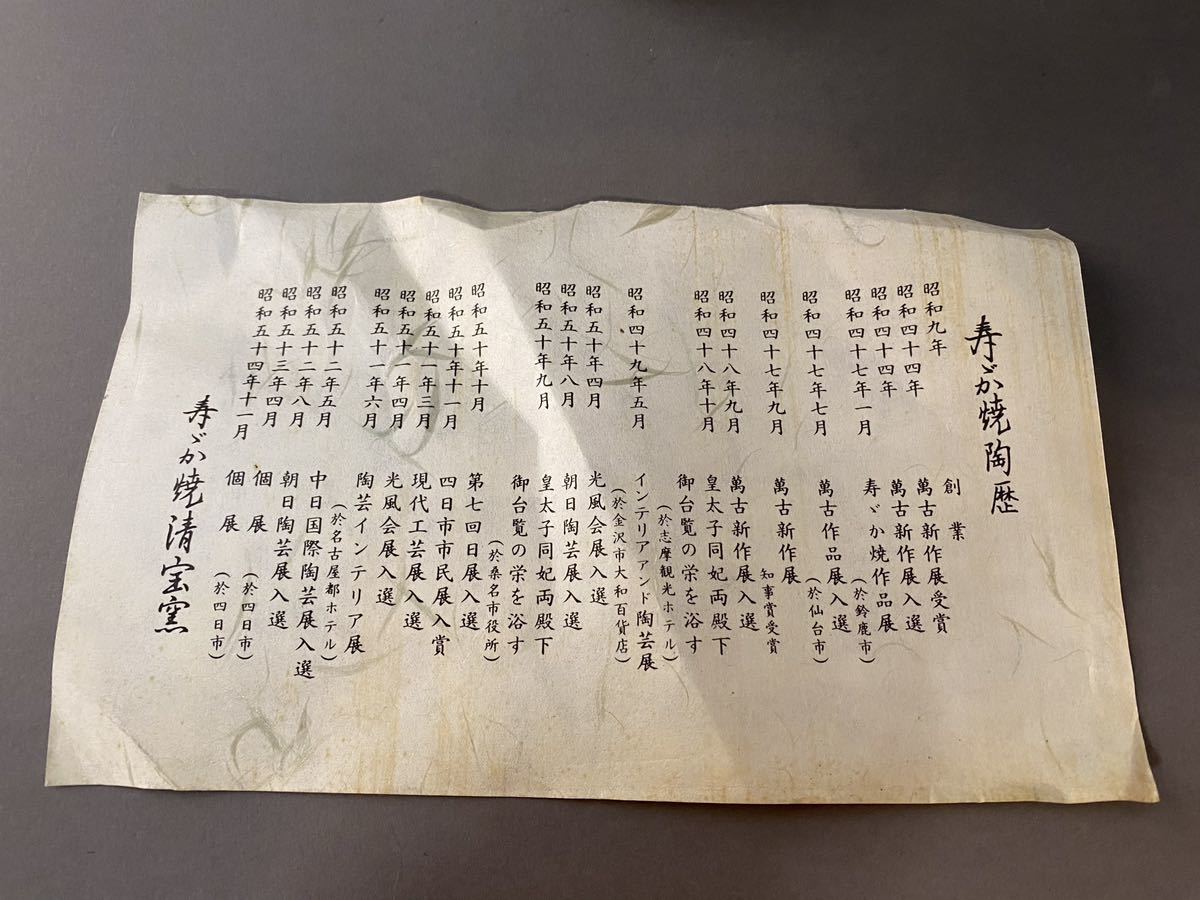 寿ゞか焼陶歴
昭和九年 創業
昭和四十四年 萬古新作展受賞
昭和四十四年 萬古新作展入選
昭和四十七年一月 寿ゞか焼作品展
(於鈴鹿市)
昭和四十七年七月 萬古作品展入選
(於仙台市)
昭和四十七年九月 萬古新作展
知事賞受賞
昭和四十八年九月 萬古新作展入選
昭和四十八年十月 皇太子同妃両殿下
御台覧の栄を浴す
(於志摩観光ホテル)
昭和四十九年五月 インテリアアンド陶芸展
(於金沢市大和百貨店)
昭和五十年四月 光風会展入選
昭和五十年八月 朝日陶芸展入選
昭和五十年九月 皇太子同妃両殿下
御台覧の栄を浴す
(於桑名市役所)
昭和五十年十月 第七回日展入選
昭和五十年十一月 四日市市民展入賞
昭和五十一年三月 現代工芸展入選
昭和五十一年四月 光風会展入選
昭和五十一年六月 陶芸インテリア展
(於名古屋都ホテル)
昭和五十二年五月 中日国際陶芸展入選
昭和五十二年八月 朝日陶芸展入選
昭和五十三年四月 個展 (於四日市)
昭和五十四年十一月 個展 (於四日市)
寿ゞか焼清宝窯